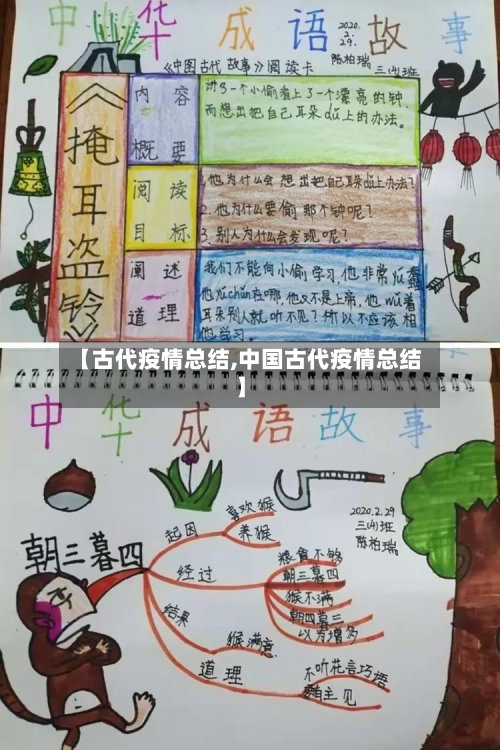 中华成语故事
2020.
2.
29.
陈柏瑞
《中国古代故事》阅读卡
三(4)班
《掩耳盗铃》
内容
概要
讲了一个小偷看上了一个漂亮的钟,
而想出把自己耳朵dǔ上的办法。
阅读
目标
1.他为什么会想出把自己耳朵dǔ上办法?
2.他为什么要偷那个钟呢?
3.别人为什么会发现呢?
阐述
道理
我们不能向小偷学习,他非常yú蠢
他yúchǔn在哪,他又不是上帝,他wǔ着
耳朵别人就听不见?所以不应该相
他学习。
【古代疫情总结,中国古代疫情总结
】
中华成语故事
2020.2.29
三(4)班
陈柏瑞
朝三暮四
起因
喜欢猴
养猴
经过
粮食不够
朝三暮四
猴不满
朝四暮三
以为增多
结果
猴满意
道理
不听花言巧语
自主见